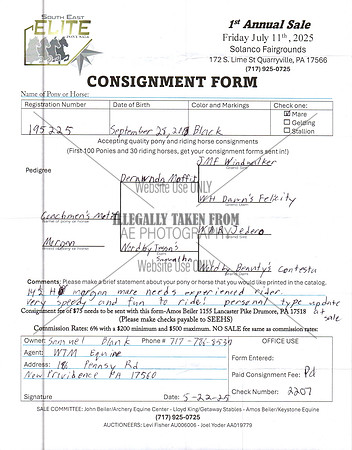 South East
ELITE
1st Annual Sale
Friday July 11th, 2025
Solanco Fairgrounds
172 S. Lime St Quarryville, PA 17566
(717) 925-0725
CONSIGNMENT FORM
Name of Pony or Horse:
Registration Number
Date of Birth
Color and Markings
Check one:
Mare
Gelding
Stallion
195225
September 28, Black
Accepting quality pony and riding horse consignments
(First 100 Ponies and 30 riding horses, get your consignment forms sent in!)
Pedigree
JMF Windwalker
WH Dawn's Felicity
Coachmen's
Morgan
Website Use ONLY
ILLEGALLY TAKEN FROM
AE PHOTOGRAPHY
Website Use ONLY
Comments: Please make a brief statement about your pony or horse that you would like printed in the catalog.
morgan mare needs experienced rider
very speedy and fun to ride! personal type update
at sale
Consignment fee of $75 needs to be sent with this form-Amos Beiler 1155 Lancaster Pike Drumore, PA 17518
(Please make checks payable to SEEHS)
Commission Rates: 6% with $200 minimum and $500 maximum. NO SALE fee same as commission rates:
Owner: Samuel Blank Phone # 717-786-
Agent: WTM Equine
Address: Pennsy Rd
New Providence PA 17560
Signature
Date: 5-22-25
OFFICE USE
Form Entered:
Paid Consignment Fee: Pd
Check Number: 2207
SALE COMMITTEE: John Beiler/Archery Equine Center - Lloyd King/Getaway Stables - Amos Beiler/Keystone Equine
(717) 925-0725
AUCTIONEERS: Levi Fisher AU006006 - Joel Yoder AA019779